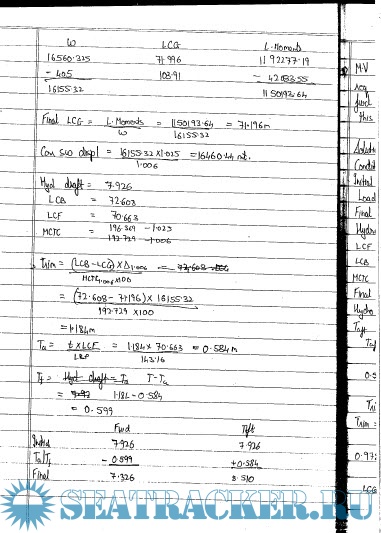 W LCG L.Moments
16560.325 71.996 1192277.19
- 405 103.91 - 42083.55
16155.32 1150193.64
Final LCG = L.Moments / W = 1150193.64 / 16155.32 = 71.196m
Corr SW displ = 16155.32 X 1.025 / 1.006 = 16460.44 mt.
Hyd draft = 7.926
LCB = 72.608
LCF = 70.663
MCTC = 196.369 - 1.025
192.729 - 1.006
Trim = (LCB - LCG) X Δ1.006 / MCTC1.006 X 100
= (72.608 - 71.196) X 16155.32 / 192.729 X 100
= 1.184m
Ta = t X LCF / LBP = 1.184 X 70.663 / 143.16 = 0.584m
Tf = Hyd draft = Ta T-Ta
= 1.184 - 0.584
= 0.599
Fwd Aft
Initial 7.926 7.926
Ta/Tf - 0.599 +0.584
Final 7.326 8.510
M.V
this
Initial
Load
Final
Hydro
LCF
LCB
MCTC
Final
Hydro
Taft
Trim =
0.97
LCG
SEATRACKER.RU